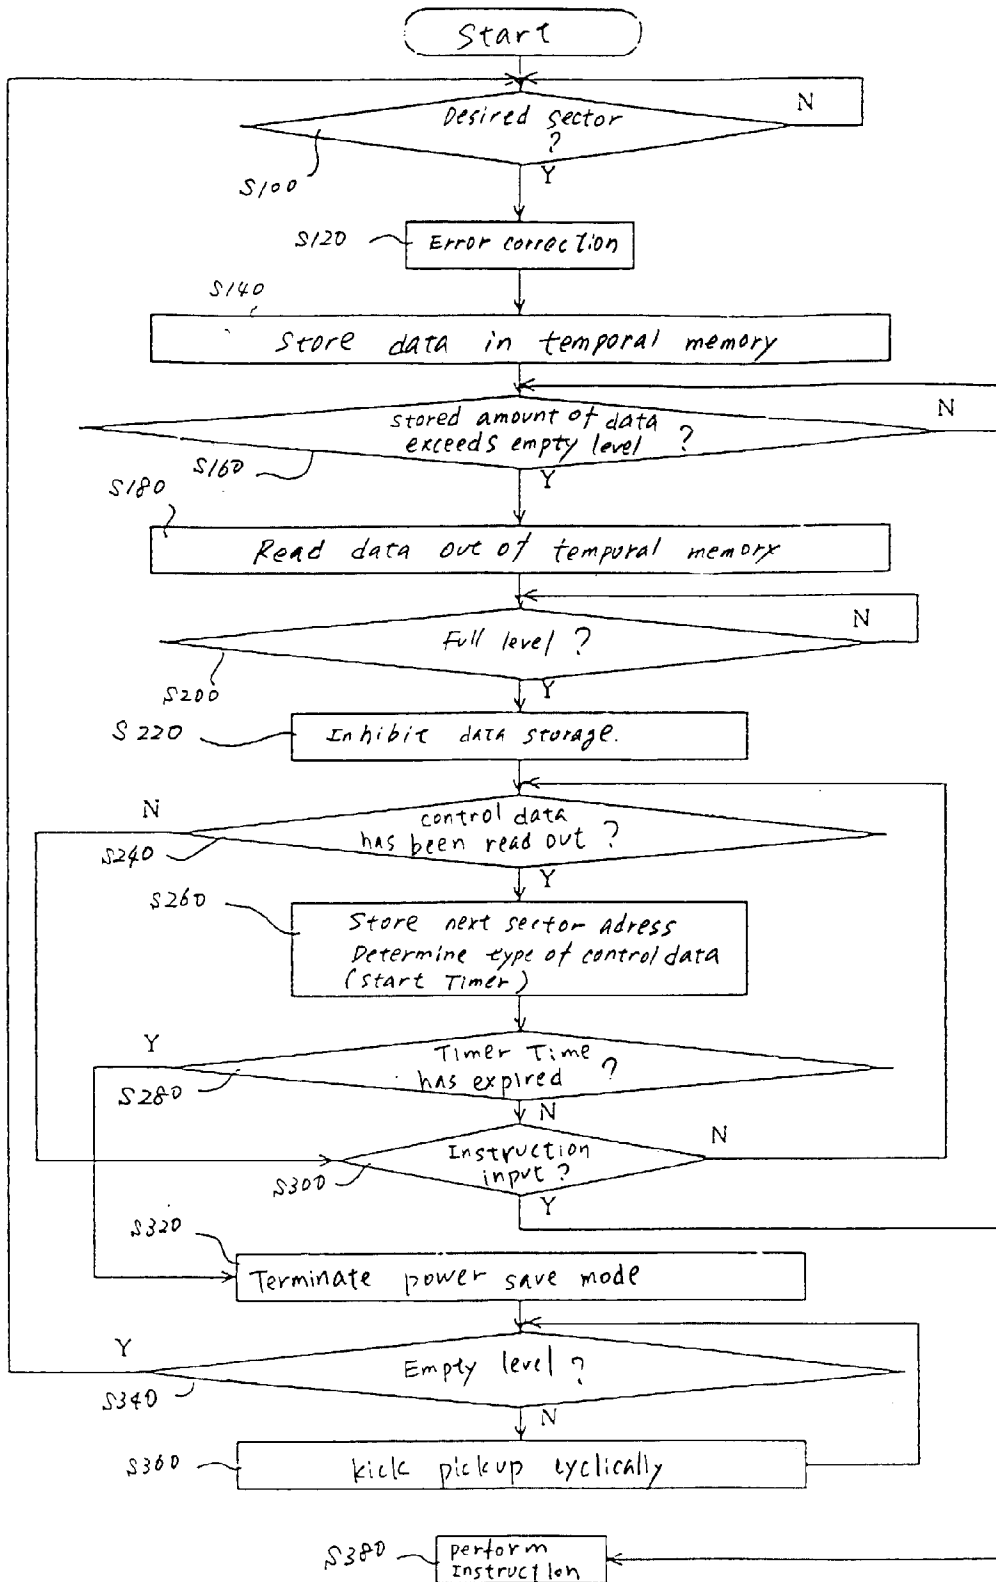 Start
N
Desired sector
?
S100
Y
S120
Error correction
S140
Store data in temporal memory
stored amount of data
exceeds empty level ?
N
S160
Y
S180
Read data out of tempural memory
N
Full level ?
S200
Y
S220
Inhibit data storage.
N
control data
has been read out ?
S240
Y
S260
Store next sector adress
Determine type of control data
(Start Timer)
Y
Timer Time
has expired ?
S280
N
N
Instruction
input ?
S300
Y
S320
Terminate power save mode
Y
Empty level ?
S340
N
S360
kick pickup cyclically
S380
perform
Instruction